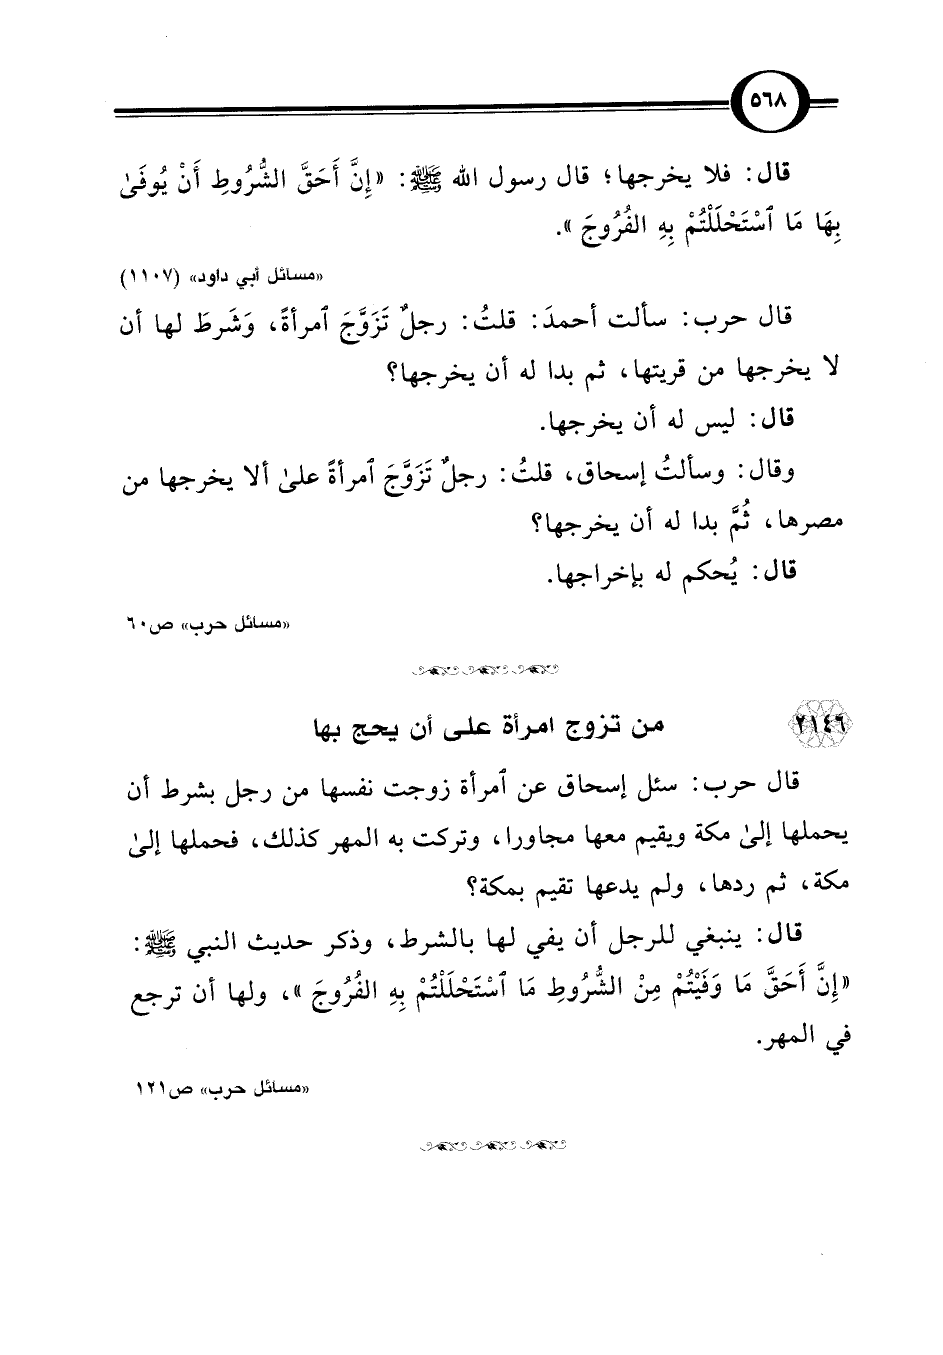 ٥٦٨
قال: فلا يخرجها؛ قال رسول الله ﷺ: «إِنَّ أَحَقَّ الشُّرُوطِ أَنْ يُوفَىٰ
بِهَا مَا ٱسْتَحْلَلْتُمْ بِهِ الفُرُوجَ».
«مسائل أبي داود» (١١٠٧)
قال حرب: سألت أحمدَ: قلتُ: رجلٌ تَزَوَّجَ ٱمرأةً، وَشَرطَ لها أن
لا يخرجها من قريتها، ثم بدا له أن يخرجها؟
قال: ليس له أن يخرجها.
وقال: وسألتُ إسحاق، قلتُ: رجلٌ تَزَوَّجَ ٱمرأةً علىٰ ألا يخرجها من
مصرها، ثُمَّ بدا له أن يخرجها؟
قال: يُحكم له بإخراجها.
«مسائل حرب» ص٦٠
٢١٤٦ من تزوج امرأة على أن يحج بها
قال حرب: سئل إسحاق عن ٱمرأة زوجت نفسها من رجل بشرط أن
يحملها إلىٰ مكة ويقيم معها مجاورا، وتركت به المهر كذلك، فحملها إلىٰ
مكة، ثم ردها، ولم يدعها تقيم بمكة؟
قال: ينبغي للرجل أن يفي لها بالشرط، وذكر حديث النبي ﷺ:
«إِنَّ أَحَقَّ مَا وَفَيْتُمْ مِنْ الشُّرُوطِ مَا ٱسْتَحْلَلْتُمْ بِهِ الفُرُوجَ»، ولها أن ترجع
في المهر.
«مسائل حرب» ص١٢١